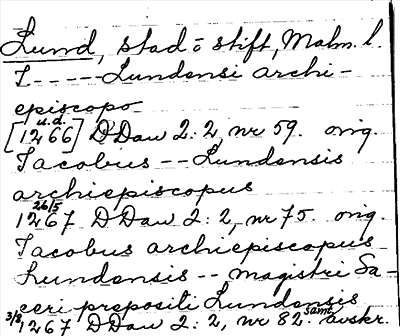 Lund, stad o stift, Malm. l.
I - - - - - Lundensi archi-
episcopo
u.d.
[1266] DDan 2:2, nr 59. orig.
Jacobus - - Lundensis
archiepiscopus
26/5
1267 DDan 2:2, nr 75. orig.
Jacobus archiepiscopus
Lundensis - - magistri Sa-
ceri prepositi Lundensis
3/8 1267 DDan 2:2, nr 82. samt. avskr.